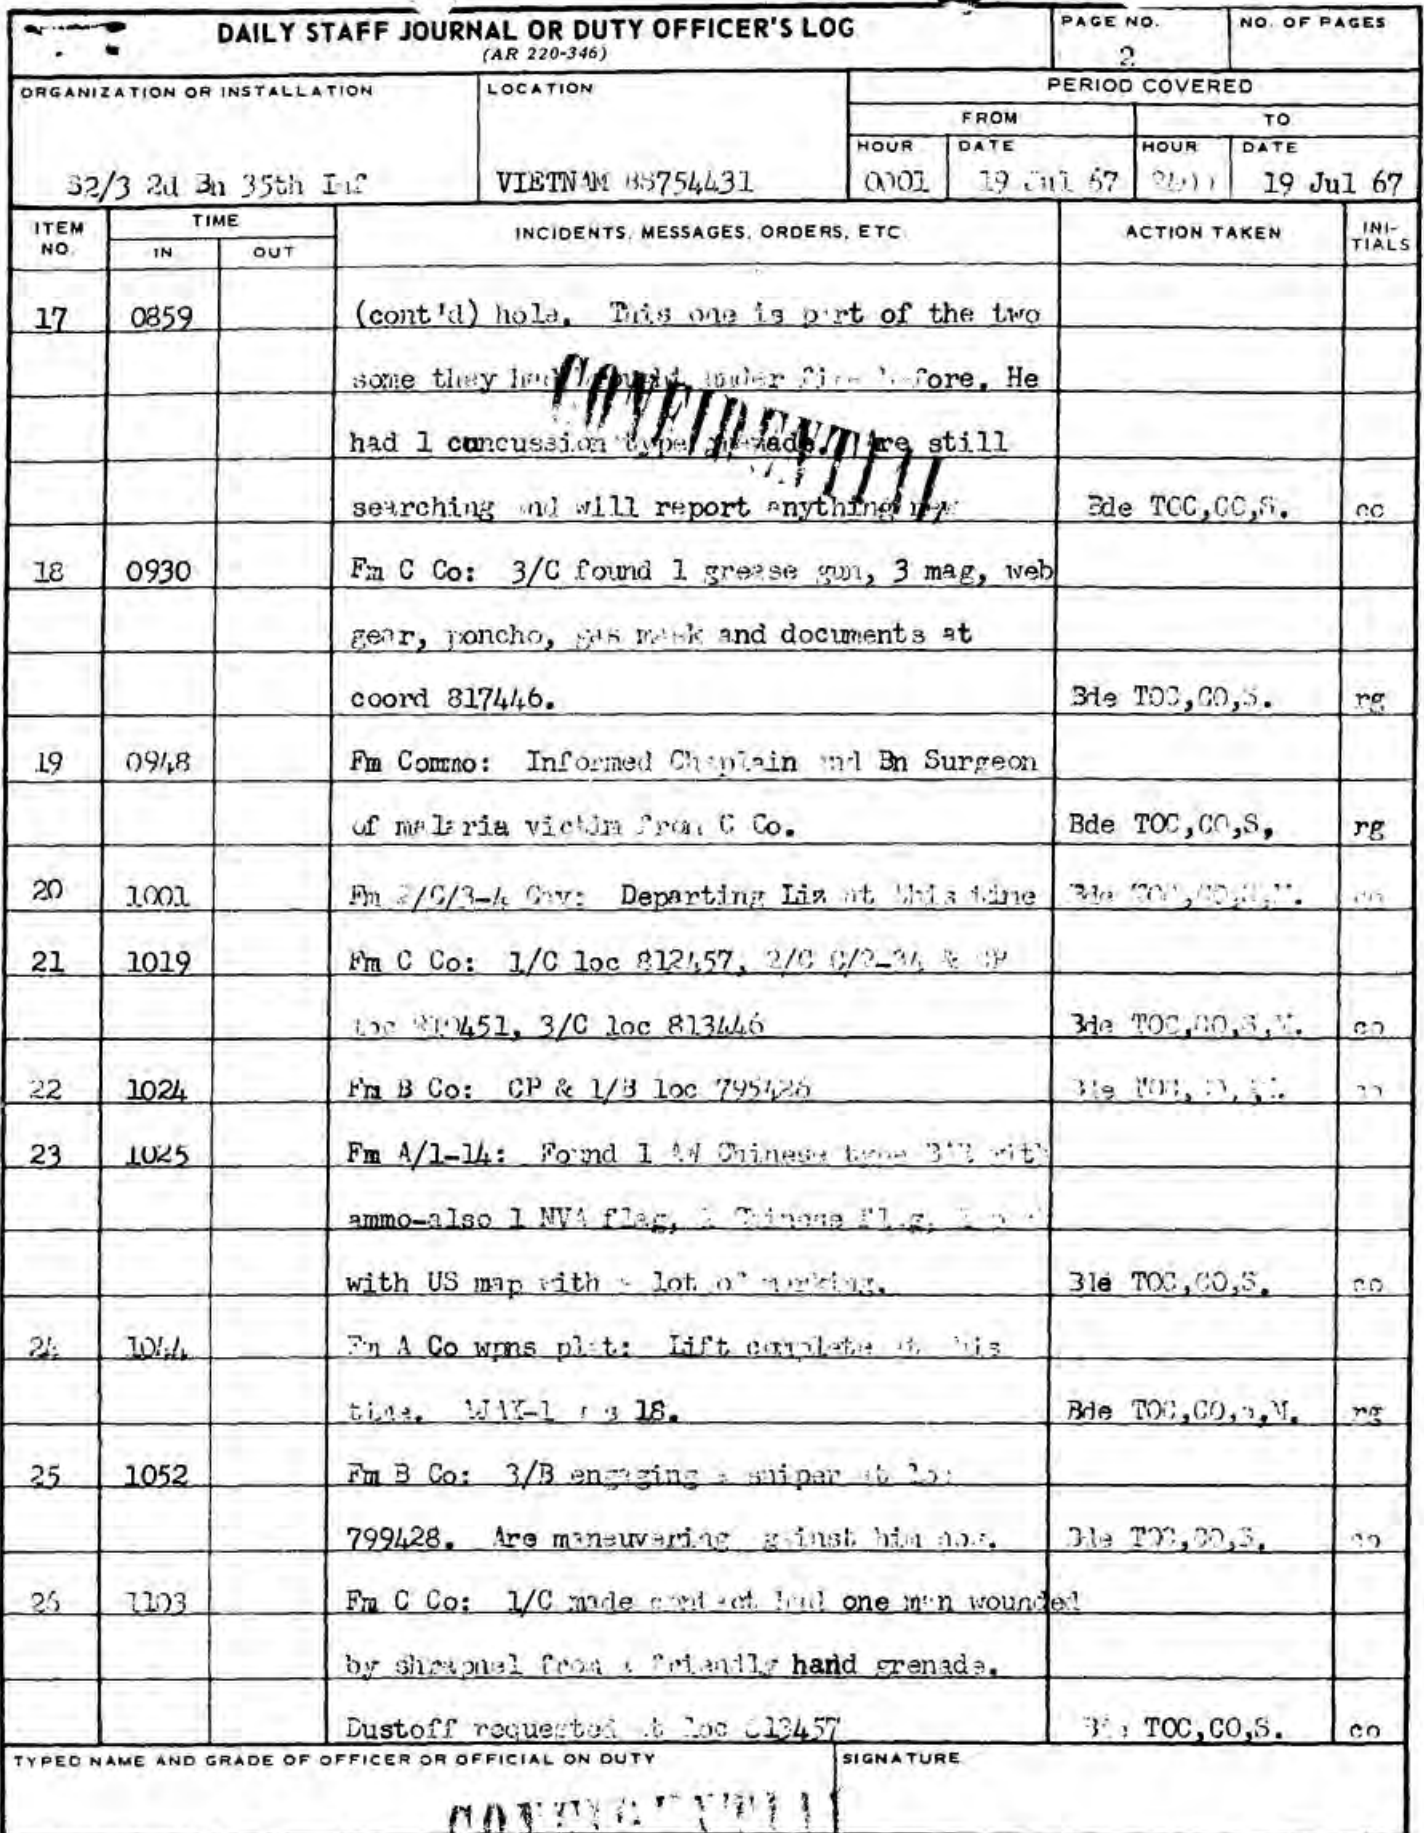 DAILY STAFF JOURNAL OR DUTY OFFICER'S LOG
(AR 220-346)
PAGE NO.
2
NO. OF PAGES
ORGANIZATION OR INSTALLATION
S2/3 2d Bn 35th Inf
LOCATION
VIETNAM BS754431
PERIOD COVERED
FROM
TO
HOUR
DATE
HOUR
DATE
0001
19 Jul 67
19 Jul 67
ITEM NO.
TIME
IN
OUT
INCIDENTS, MESSAGES, ORDERS, ETC.
ACTION TAKEN
INI-TIALS
17 0859 (cont'd) hole. This one is part of the two
some they had under fire before. He
had 1 concussion type still
searching and will report anything Bde TOC,CO,S.
CONFIDENTIAL
18 0930 Fm C Co: 3/C found 1 grease gun, 3 mag, web
gear, poncho, gas mask and documents at
coord 817446. Bde TOC,CO,S. rg
19 0948 Fm Commo: Informed Chaplain and Bn Surgeon
of malaria victim from C Co. Bde TOC,CO,S, rg
20 1001 Fm Cav: Departing Liz at this time
21 1019 Fm C Co: 1/C loc 812457, 2/C & CP
loc 3/C loc 813446 Bde TOC,CO,S,M. co
22 1024 Fm B Co: CP & 1/B loc 795426
23 1025 Fm A/1-14: Found 1 AW Chinese type with
ammo-also 1 NVA flag, flag,
with US map with a lot of marking. Bde TOC,CO,S. co
24 1044 Fm A Co wpns plat: Lift complete at this
time. 18. Bde TOC,CO,S,M. rg
25 1052 Fm B Co: 3/B engaging a sniper at loc
799428. Are maneuvering against him now. Bde TOC,CO,S. co
26 1103 Fm C Co: 1/C made contact had one man wounded
by shrapnel from a friendly hand grenade.
Dustoff requested at loc 813457 Bde TOC,CO,S. co
TYPED NAME AND GRADE OF OFFICER OR OFFICIAL ON DUTY
SIGNATURE
CONFIDENTIAL